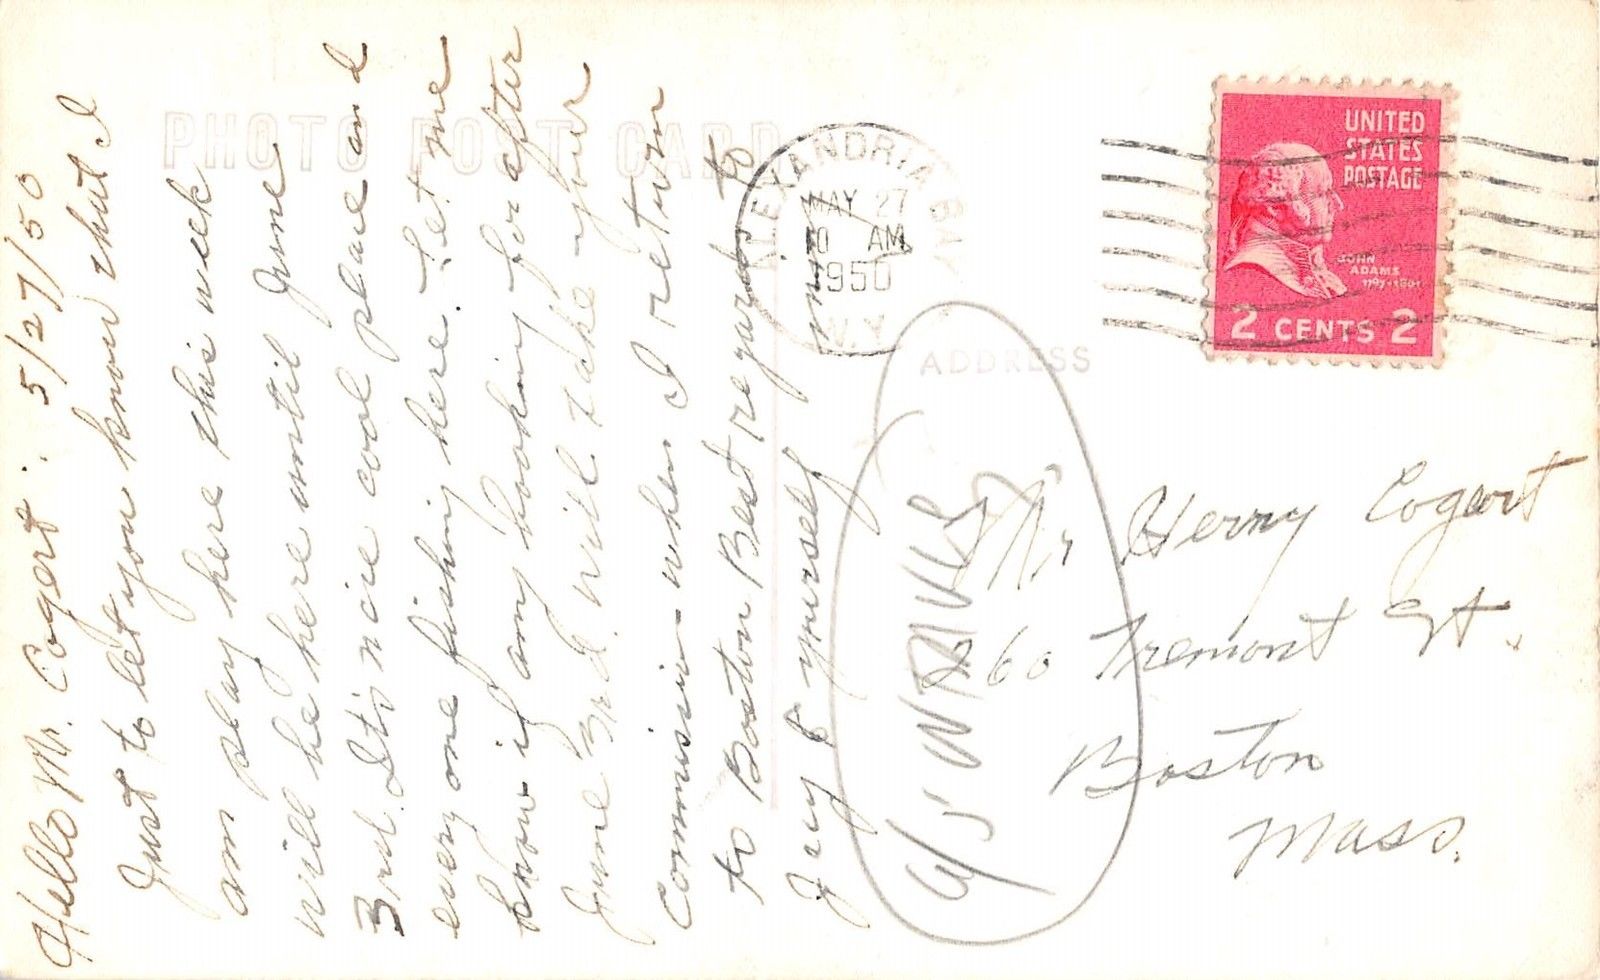 Hello Mr. Cogert. 5/27/50
Just to let you know that I
am play here this week
will be here until June
3rd. It's nice cool place and
every one fishing here. Let me
know if any booking for after
June 3rd. will take your
Commission when I return
to Boston Best regards to
Jacy & yourself
PHOTO POST CARD
ALEXANDRIA BAY
MAY 27
10 AM
1950
N.Y.
UNITED
STATES
POSTAGE
JOHN
ADAMS
1797-1801
2 CENTS 2
ADDRESS
Mr Henry Cogert
260 Tremont St.
Boston
Mass.